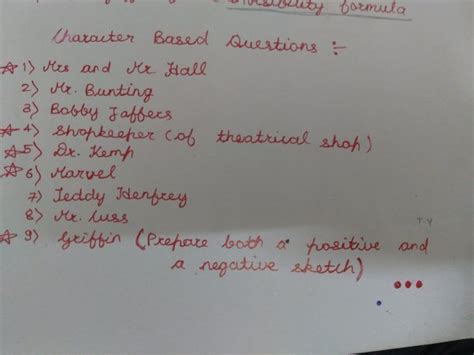 invisibility formula
Character Based Questions :-
☆ 1) Mrs and Mr Hall
2) Mr. Bunting
3) Bobby Jaffers
☆ 4) Shopkeeper (of theatrical shop)
☆ 5) Dr. Kemp
☆ 6) Marvel
7) Teddy Henfrey
8) Mr. Cuss
T.Y
☆ 9) Griffin (Prepare both a positive and
a negative sketch)